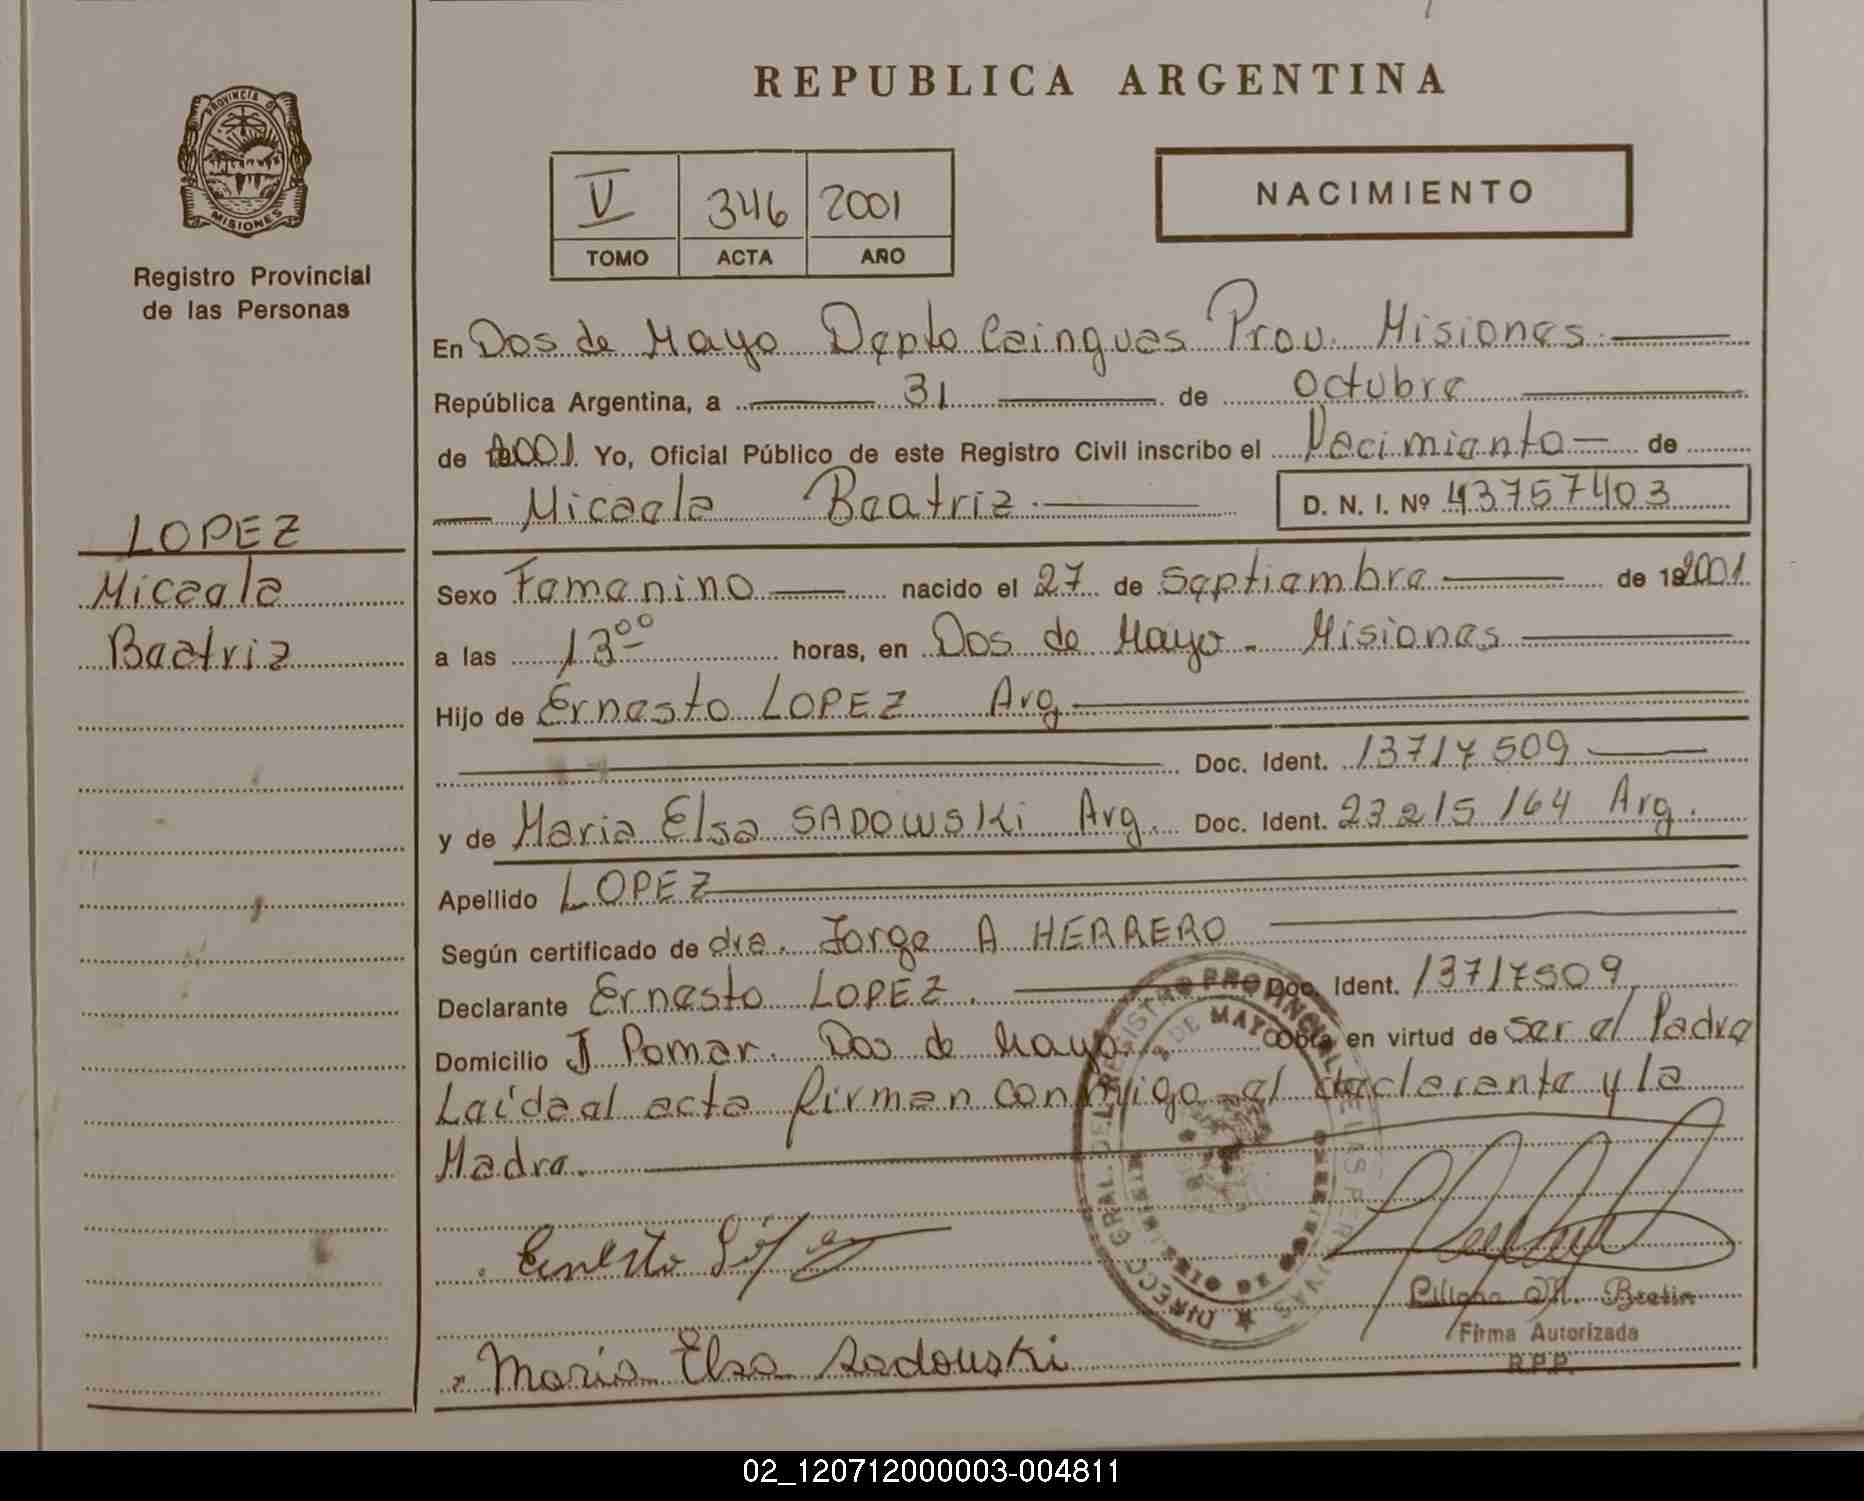 REPUBLICA ARGENTINA
PROVINCIA D
MISIONES
Registro Provincial
de las Personas
V 346 2001
TOMO ACTA AÑO
NACIMIENTO
LOPEZ
Micaela
Beatriz
En Dos de Mayo Depto Cainguas Prov. Misiones
República Argentina, a 31 de octubre
de 2001 Yo, Oficial Público de este Registro Civil inscribo el Nacimiento de
Micaela Beatriz D. N. I. Nº 43757403
Sexo Femenino nacido el 27 de Septiembre de 192001
a las 13ºº horas, en Dos de Mayo - Misiones
Hijo de Ernesto LOPEZ Arg
Doc. Ident. 13717509
y de Maria Elsa SADOWSKi Arg. Doc. Ident. 23215164 Arg.
Apellido LOPEZ
Según certificado de dra. Jorge A HERRERO
Declarante Ernesto LOPEZ. Doc. Ident. 13717509
Domicilio J Pomar. Dos de Mayo. Obra en virtud de ser el Padre
Laída el acta firman conmigo el declarante y la
Madre.
DIRECC GRAL. DEL REGISTRO PROVINCIAL DE LAS PERSONAS
DE MAYO
Ernesto López
Liliana M. Bretin
Firma Autorizada
R.P.P.
Maria Elsa Sadouski
02_120712000003-004811